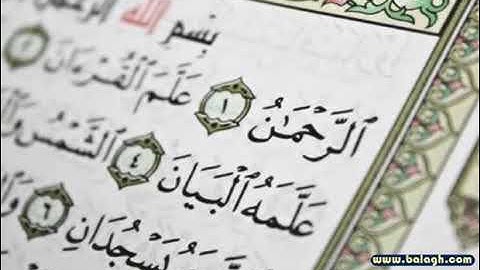 بِسْمِ ٱللَّهِ ٱلرَّحْمَٰنِ
ٱلرَّحْمَٰنُ ١ عَلَّمَ ٱلْقُرْءَانَ ٢
عَلَّمَهُ ٱلْبَيَانَ ٤ ٱلشَّمْسُ
يَسْجُدَانِ ٦
www.balagh.com